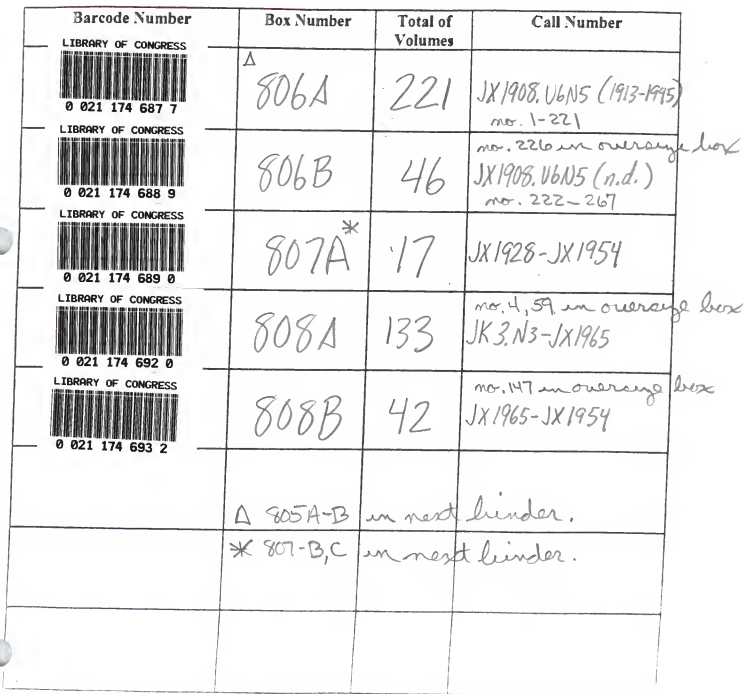 Barcode Number Box Number Total of Volumes Call Number
LIBRARY OF CONGRESS
0 021 174 687 7
Δ
806A
221
JX1908.U6N5 (1913-1945)
no. 1-221
LIBRARY OF CONGRESS
0 021 174 688 9
806B
46
no. 226 in oversize box
JX1908.U6N5 (n.d.)
no. 222-267
LIBRARY OF CONGRESS
0 021 174 689 0
807A*
17
JX1928-JX1954
LIBRARY OF CONGRESS
0 021 174 692 0
808A
133
no. 4, 59 in oversize box
JK3.N3-JX1965
LIBRARY OF CONGRESS
0 021 174 693 2
808B
42
no. 147 in oversize box
JX1965-JX1954
Δ 805A-B in next binder.
* 807-B,C in next binder.